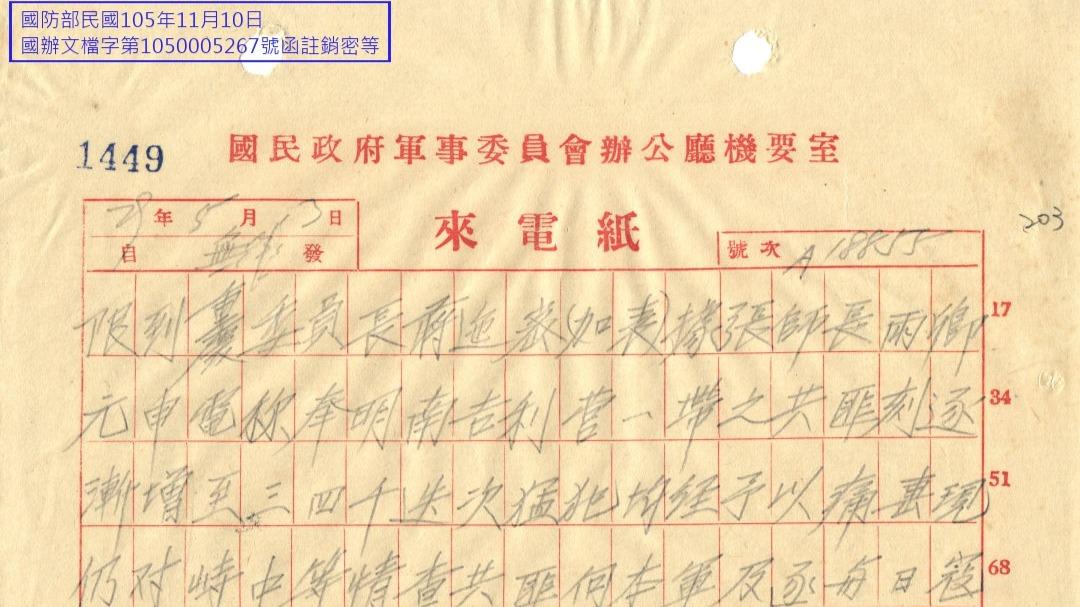 國防部民國105年11月10日
國辦文檔字第1050005267號函註銷密等
1449
國民政府軍事委員會辦公廳機要室
29年5月13日
來電紙
203
自無線發
號次 A18855
限到重慶委員長蔣迤密(加表)據張師長雨卿 17
元申電稱奉明南吉利營一帶之共匪刻逐 34
漸增至三四千迭次猛犯均經予以痛 現 51
仍對峙中等情查共匪向本軍及逐每日寇 68